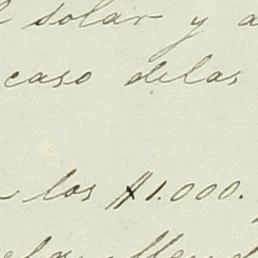 solar y a
caso delas
los $1.000.